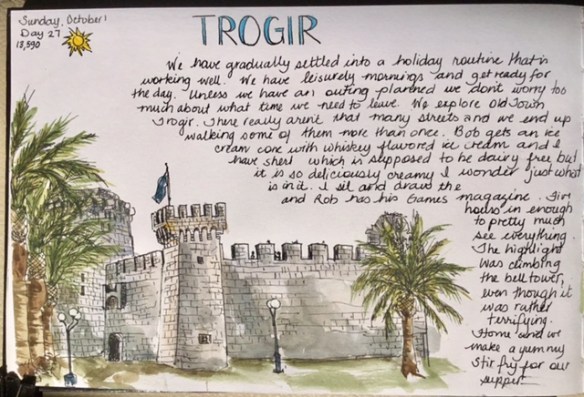 Sunday, October 1
Day 27
18,590
TROGIR
We have gradually settled into a holiday routine that is
working well. We have leisurely mornings and get ready for
the day. Unless we have an outing planned we don't worry too
much about what time we need to leave. We explore Old Town
Trogir. There really arent that many streets and we end up
walking some of them more than once. Bob gets an ice
cream cone with whiskey flavored ice cream and I
have sherbert which is supposed to be dairy free but
it is so deliciously creamy I wonder just what
is in it. I sit and draw the
and Rob has his Games magazine. Five
hours in enough
to pretty much
see everything.
The highlight
was climbing
the bell tower,
even though it
was rather
terrifying.
Home and we
make a yummy
stir fry for our
supper